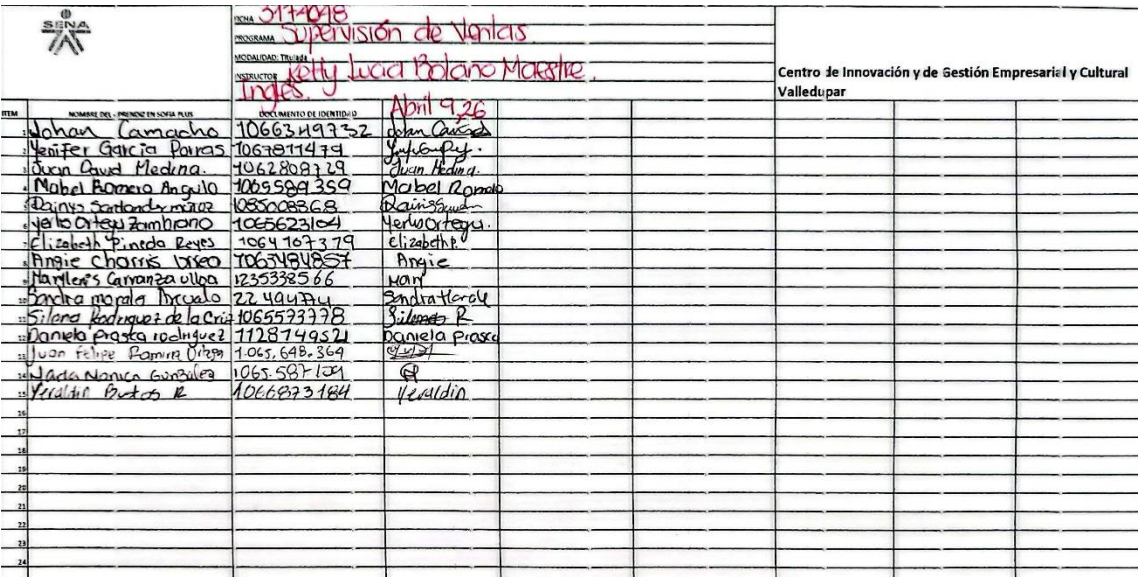 SENA
FICHA 3174048
PROGRAMA Supervisión de Ventas
MODALIDAD: Titulada
INSTRUCTOR Ketty Lucia Bolaño Maestre.
Ingles.
Centro de Innovación y de Gestión Empresarial y Cultural
Valledupar
ITEM NOMBRE DEL APRENDIZ EN SOFIA PLUS DOCUMENTO DE IDENTIDAD Abril 9,26
1 Johan Camacho 1066349732 Johan
2 Yenifer Garcia Porras 1067811479
3 Juan David Medina. 1062808729 Juan Medina.
4 Mabel Romero Angulo 1065589359 Mabel Romero
5 Dainys Santander muñoz 1085008368
6 Yerlis Ortega Zambrano 1065623104 Yerlis Ortega.
7 Elizabeth Pineda Reyes 1064107379 Elizabeth P.
8 Angie Charris 1065484857 Angie
9 Carranza ulloa 1235338566 Mary
10 Sandra morales Arevalo Sandra
11 Silena Rodriguez de la Cruz 1065573778 R
12 Daniela Prasca rodriguez 1128149521 Daniela Prasca
13 Juan Felipe 1.065.648.364
14 Gonzalez 1065.587109
15 Yeraldin Bustos R 1066873184 Yeraldin
16
17
18
19
20
21
22
23
24